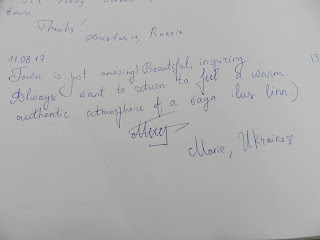 town
Thanks!
Anastasia, Russia
11.08.17
Town is just amazing! Beautiful, inspiring
Always want to return to feel a warm
authentic atmosphere of a vaga ilus linn)
Marie, Ukraine
13